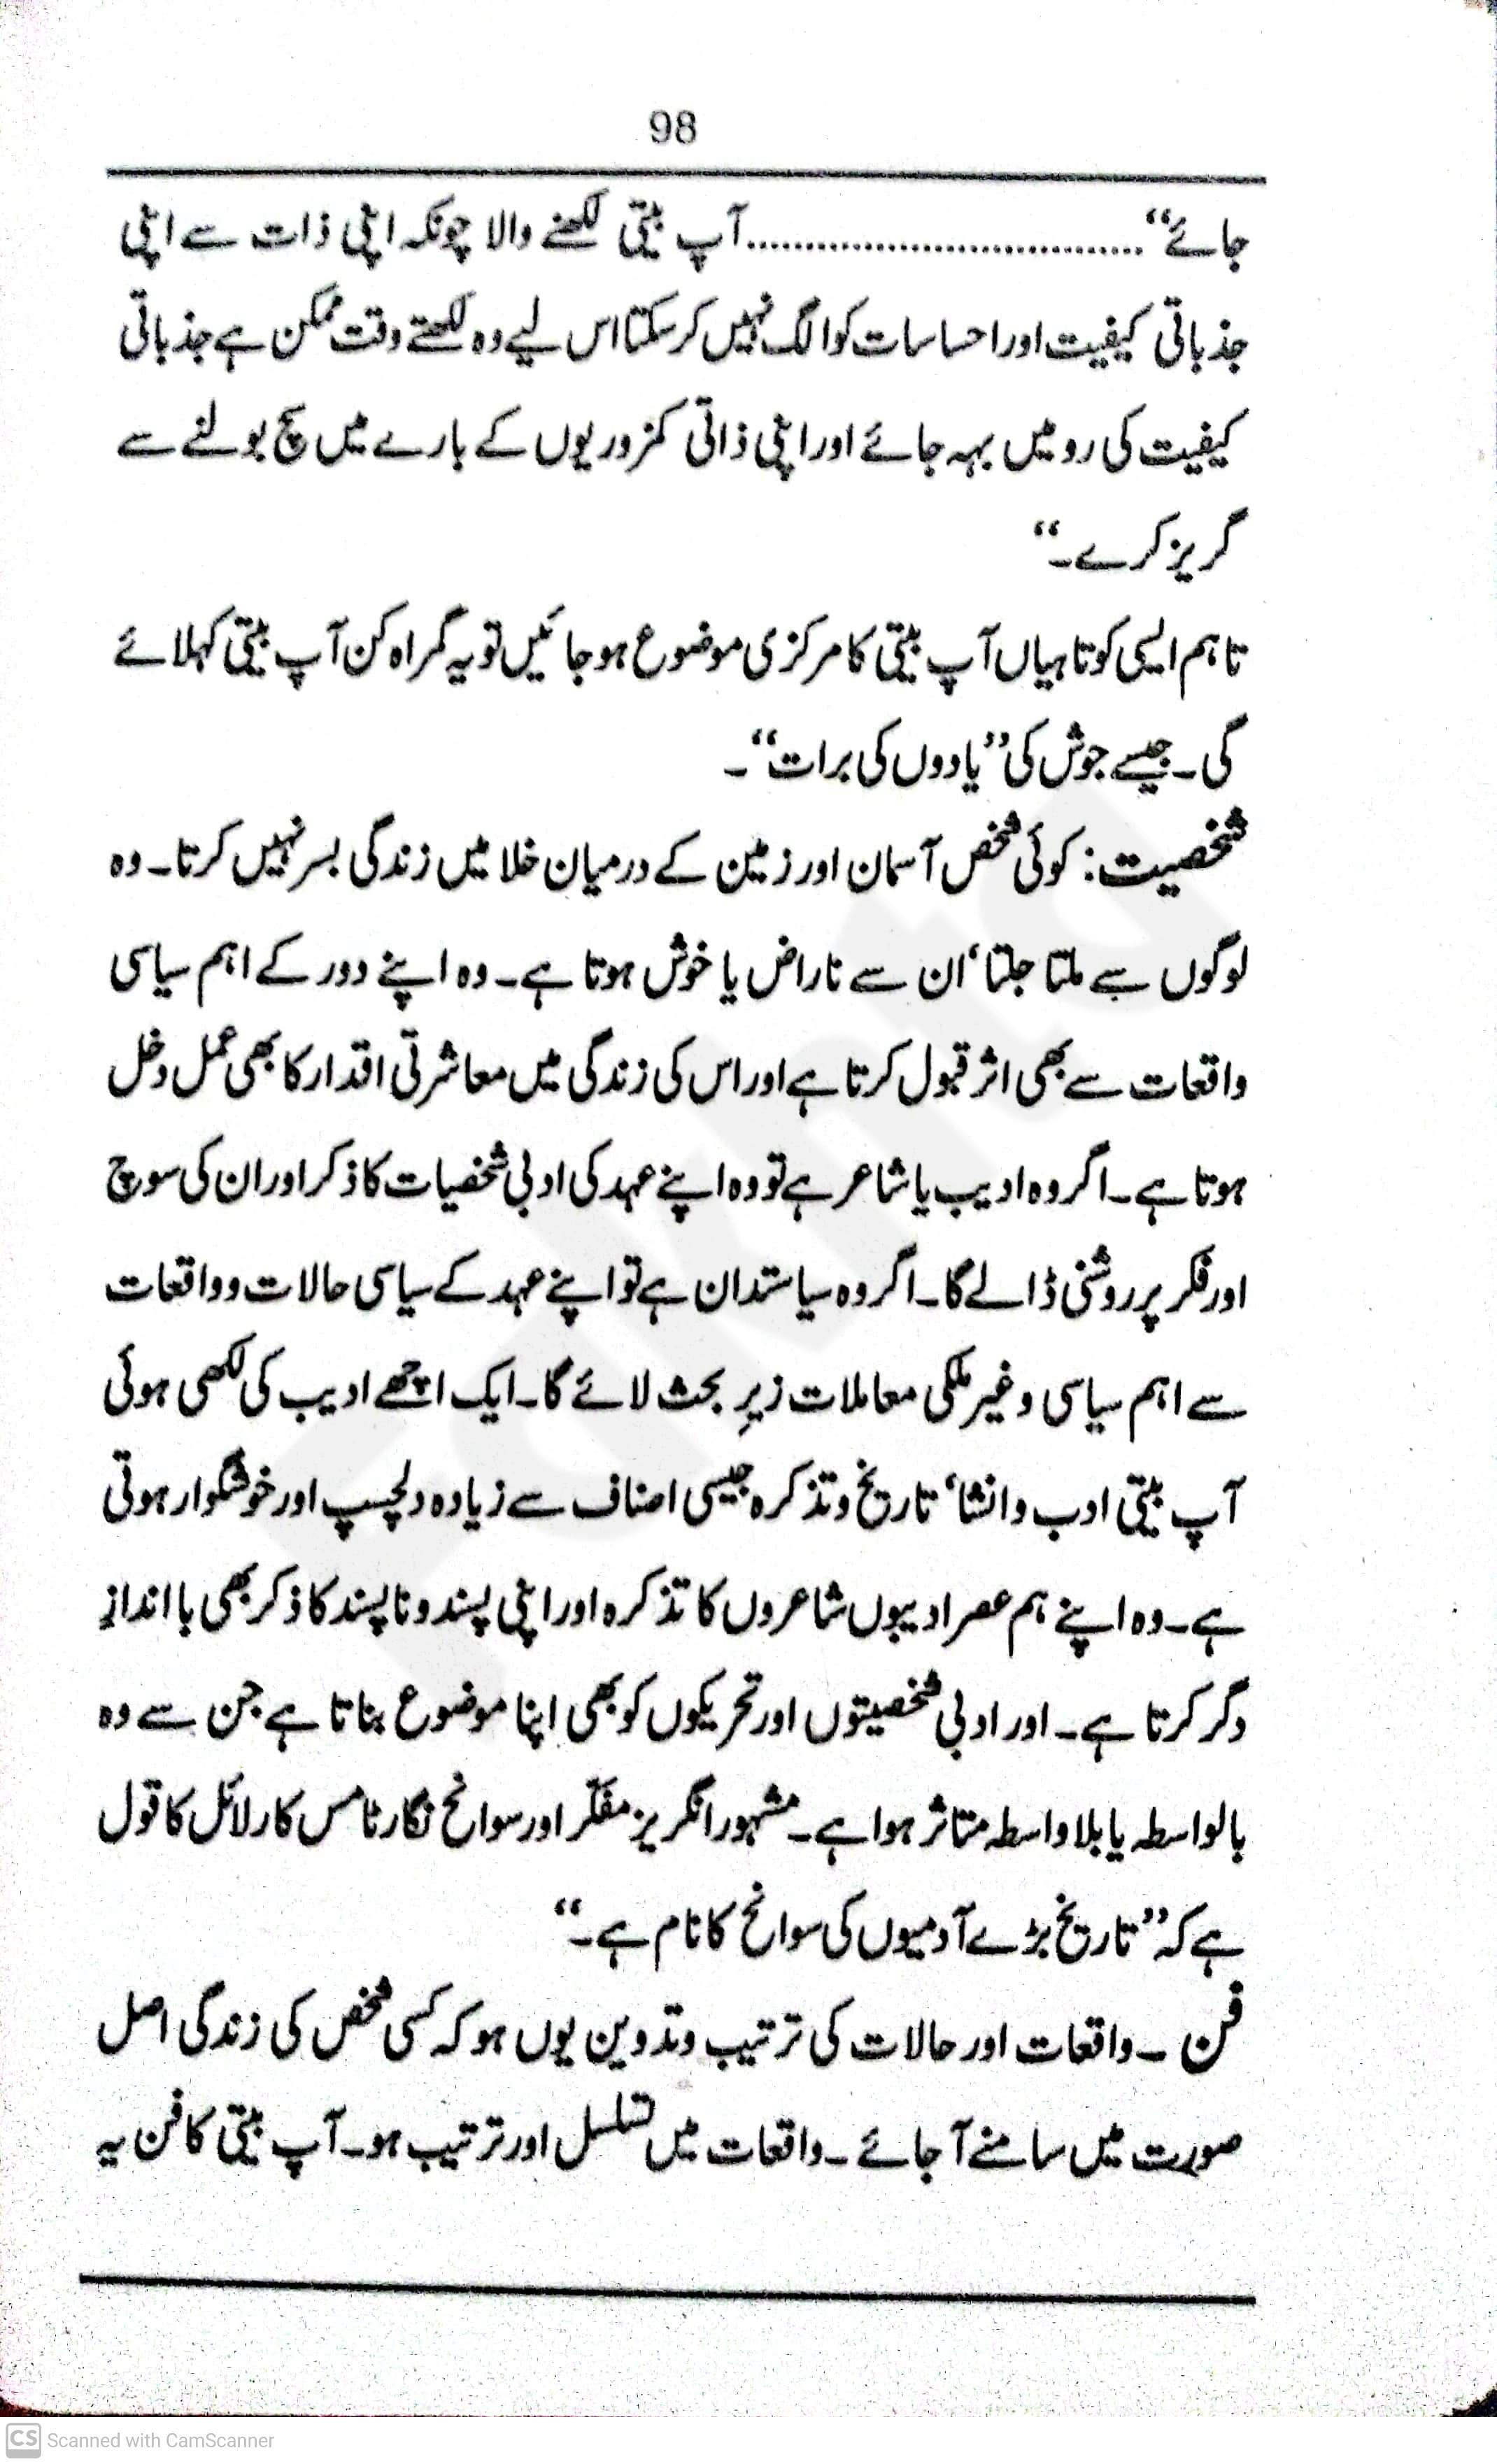 98
جائے‘‘..................................آپ بیتی لکھنے والا چونکہ اپنی ذات سے اپنی
جذباتی کیفیت اور احساسات کو الگ نہیں کر سکتا اس لیے وہ لکھتے وقت ممکن ہے جذباتی
کیفیت کی رو میں بہہ جائے اور اپنی ذاتی کمزوریوں کے بارے میں سچ بولنے سے
گریز کرے۔‘‘
تاہم ایسی کوتاہیاں آپ بیتی کا مرکزی موضوع ہو جائیں تو یہ گمراہ کن آپ بیتی کہلائے
گی۔ جیسے جوش کی ’’یادوں کی برات‘‘۔
شخصیت: کوئی شخص آسمان اور زمین کے درمیان خلا میں زندگی بسر نہیں کرتا۔ وہ
لوگوں سے ملتا جلتا‘ ان سے ناراض یا خوش ہوتا ہے۔ وہ اپنے دور کے اہم سیاسی
واقعات سے بھی اثر قبول کرتا ہے اور اس کی زندگی میں معاشرتی اقدار کا بھی عمل دخل
ہوتا ہے۔ اگر وہ ادیب یا شاعر ہے تو وہ اپنے عہد کی ادبی شخصیات کا ذکر اور ان کی سوچ
اور فکر پر روشنی ڈالے گا۔ اگر وہ سیاستدان ہے تو اپنے عہد کے سیاسی حالات و واقعات
سے اہم سیاسی و غیر ملکی معاملات زیرِ بحث لائے گا۔ ایک اچھے ادیب کی لکھی ہوئی
آپ بیتی ادب و انشا‘ تاریخ و تذکرہ جیسی اصناف سے زیادہ دلچسپ اور خوشگوار ہوتی
ہے۔ وہ اپنے ہم عصر ادیبوں شاعروں کا تذکرہ اور اپنی پسند و ناپسند کا ذکر بھی با اندازِ
دگر کرتا ہے۔ اور ادبی شخصیتوں اور تحریکوں کو بھی اپنا موضوع بناتا ہے جن سے وہ
بالواسطہ یا بلاواسطہ متاثر ہوا ہے۔ مشہور انگریز مفکّر اور سوانح نگار ٹامس کارلائل کا قول
ہے کہ ’’تاریخ بڑے آدمیوں کی سوانح کا نام ہے۔‘‘
فن ۔ واقعات اور حالات کی ترتیب و تدوین یوں ہو کہ کسی شخص کی زندگی اصل
صورت میں سامنے آ جائے ۔ واقعات میں تسلسل اور ترتیب ہو۔ آپ بیتی کا فن یہ
CS Scanned with CamScanner